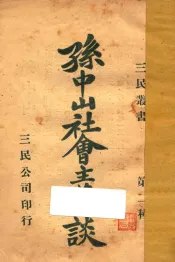 三民叢書
第 種
孫中山社會主 談
三民公司印行